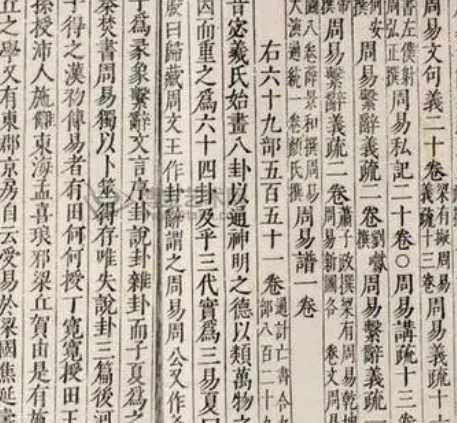 周易文句義二十卷梁有擬周易義疏十三卷周易義疏十
書左僕射周弘正撰周易私記二十卷〇周易講疏十三卷
何妥撰周易繫辭義疏二卷劉瓛撰周易繫辭義疏一
撰周易繫辭義疏二卷蕭子政撰梁有周易乾坤周易新圖各卷又周易
圖八卷薛景和撰周易大演通統一卷顏氏撰周易譜一卷
右六十九部五百五十一卷通計亡書合九部八百二十九
昔宓羲氏始畫八卦以通神明之德以類萬物之
因而重之爲六十四卦及乎三代實爲三易夏曰
殷曰歸藏周文王作卦辭謂之周易周公又作
子爲彖象繫辭文言序卦說卦雜卦而子夏爲之
秦焚書周易獨以卜筮得存唯失說卦三篇後河
子得之漢初傳易者有田何何授丁寬寬授田王
孫授沛人施讎東海孟喜琅邪梁丘賀由是有施
丘之學又有東郡京房自云受易於梁國焦延壽